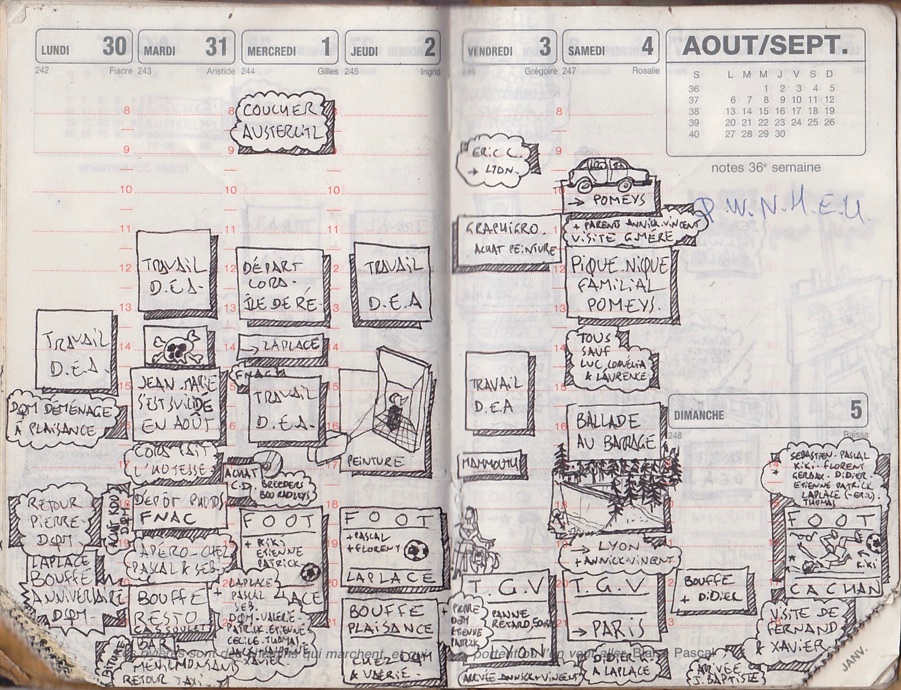 LUNDI 30
242 Fiacre
TRAVAIL
D.E.A.
DOM DÉMÉNAGE
À PLAISANCE
RETOUR
PIERRE-
DOM
LAPLACE
BOUFFE
ANNIVERSAIRE
DOM
MARDI 31
243 Aristide
8
9
10
11
12
13
14
TRAVAIL
D.E.A.
JEAN MARC
S'EST SUICIDÉ
EN AOÛT
CORA FAIT
L'HOTESSE
DEPÔT PHOTO
FNAC
APÉRO-CHEZ
PASCAL & SEB.
BOUFFE
RESTO
MENILMONTANT
RETOUR TAXI
MERCREDI 1
244 Gilles
COUCHER
AUSTERLITZ
DÉPART
CORA-
ÎLE DE RÉ-
→ LAPLACE
FNAC
TRAVAIL
D.E.A.
ACHAT
C.D.
BREEDERS
BOO RADLEYS
FOOT
+ KIKI
ETIENNE
PATRICK
LAPLACE
PASCAL
SEB.
DOM-VALERIE-
PATRICK-ETIENNE
CECILE-THOMAS
XAVIER
JEUDI 2
245 Ingrid
TRAVAIL
D.E.A
PEINTURE
FOOT
+ PASCAL
+ FLORENT
LAPLACE
BOUFFE
PLAISANCE
CHEZ DOM
& VALÉRIE.
VENDREDI 3
Grégoire
ERIC C.
→ LYON
GRAPHIGRO.
ACHAT PEINTURE
TRAVAIL
D.E.A
MAMMOUTH
T.G.V
PANNE
RETARD 50mn
LYON
PIERRE
DOM
ETIENNE
PATRICK
ARRIVÉE ANNICK-VINCENT
SAMEDI 4
247 Rosalie
8
→ POMEYS
+ PARENT ANNICK-VINCENT
VISITE G.MÈRE
PIQUE.NIQUE
FAMILIAL
POMEYS.
TOUS
SAUF
LUC, CORNÉLIA
& LAURENCE
BALLADE
AU BARRAGE
→ LYON
+ ANNICK-VINCENT
T.G.V.
→ PARIS
DIDIER K
À LAPLACE
AOUT/SEPT.
S L M M J V S D
36 1 2 3 4 5
37 6 7 8 9 10 11 12
38 13 14 15 16 17 18 19
39 20 21 22 23 24 25 26
40 27 28 29 30
notes 36e semaine
DIMANCHE 5
248 Raïssa
BOUFFE
+ DIDIER
SEBASTIEN-PASCAL
KIKI-FLORENT
DIDIER-
ETIENNE PATRICK
LAPLACE (-ERIC).
THOMAS
FOOT
KIKI
CACHAN
VISITE DE
FERNAND
& XAVIER
ARRIVÉE
J. BAPTISTE
qui marchent, et
portent où l'on veut aller. Blaise Pascal
JANV.